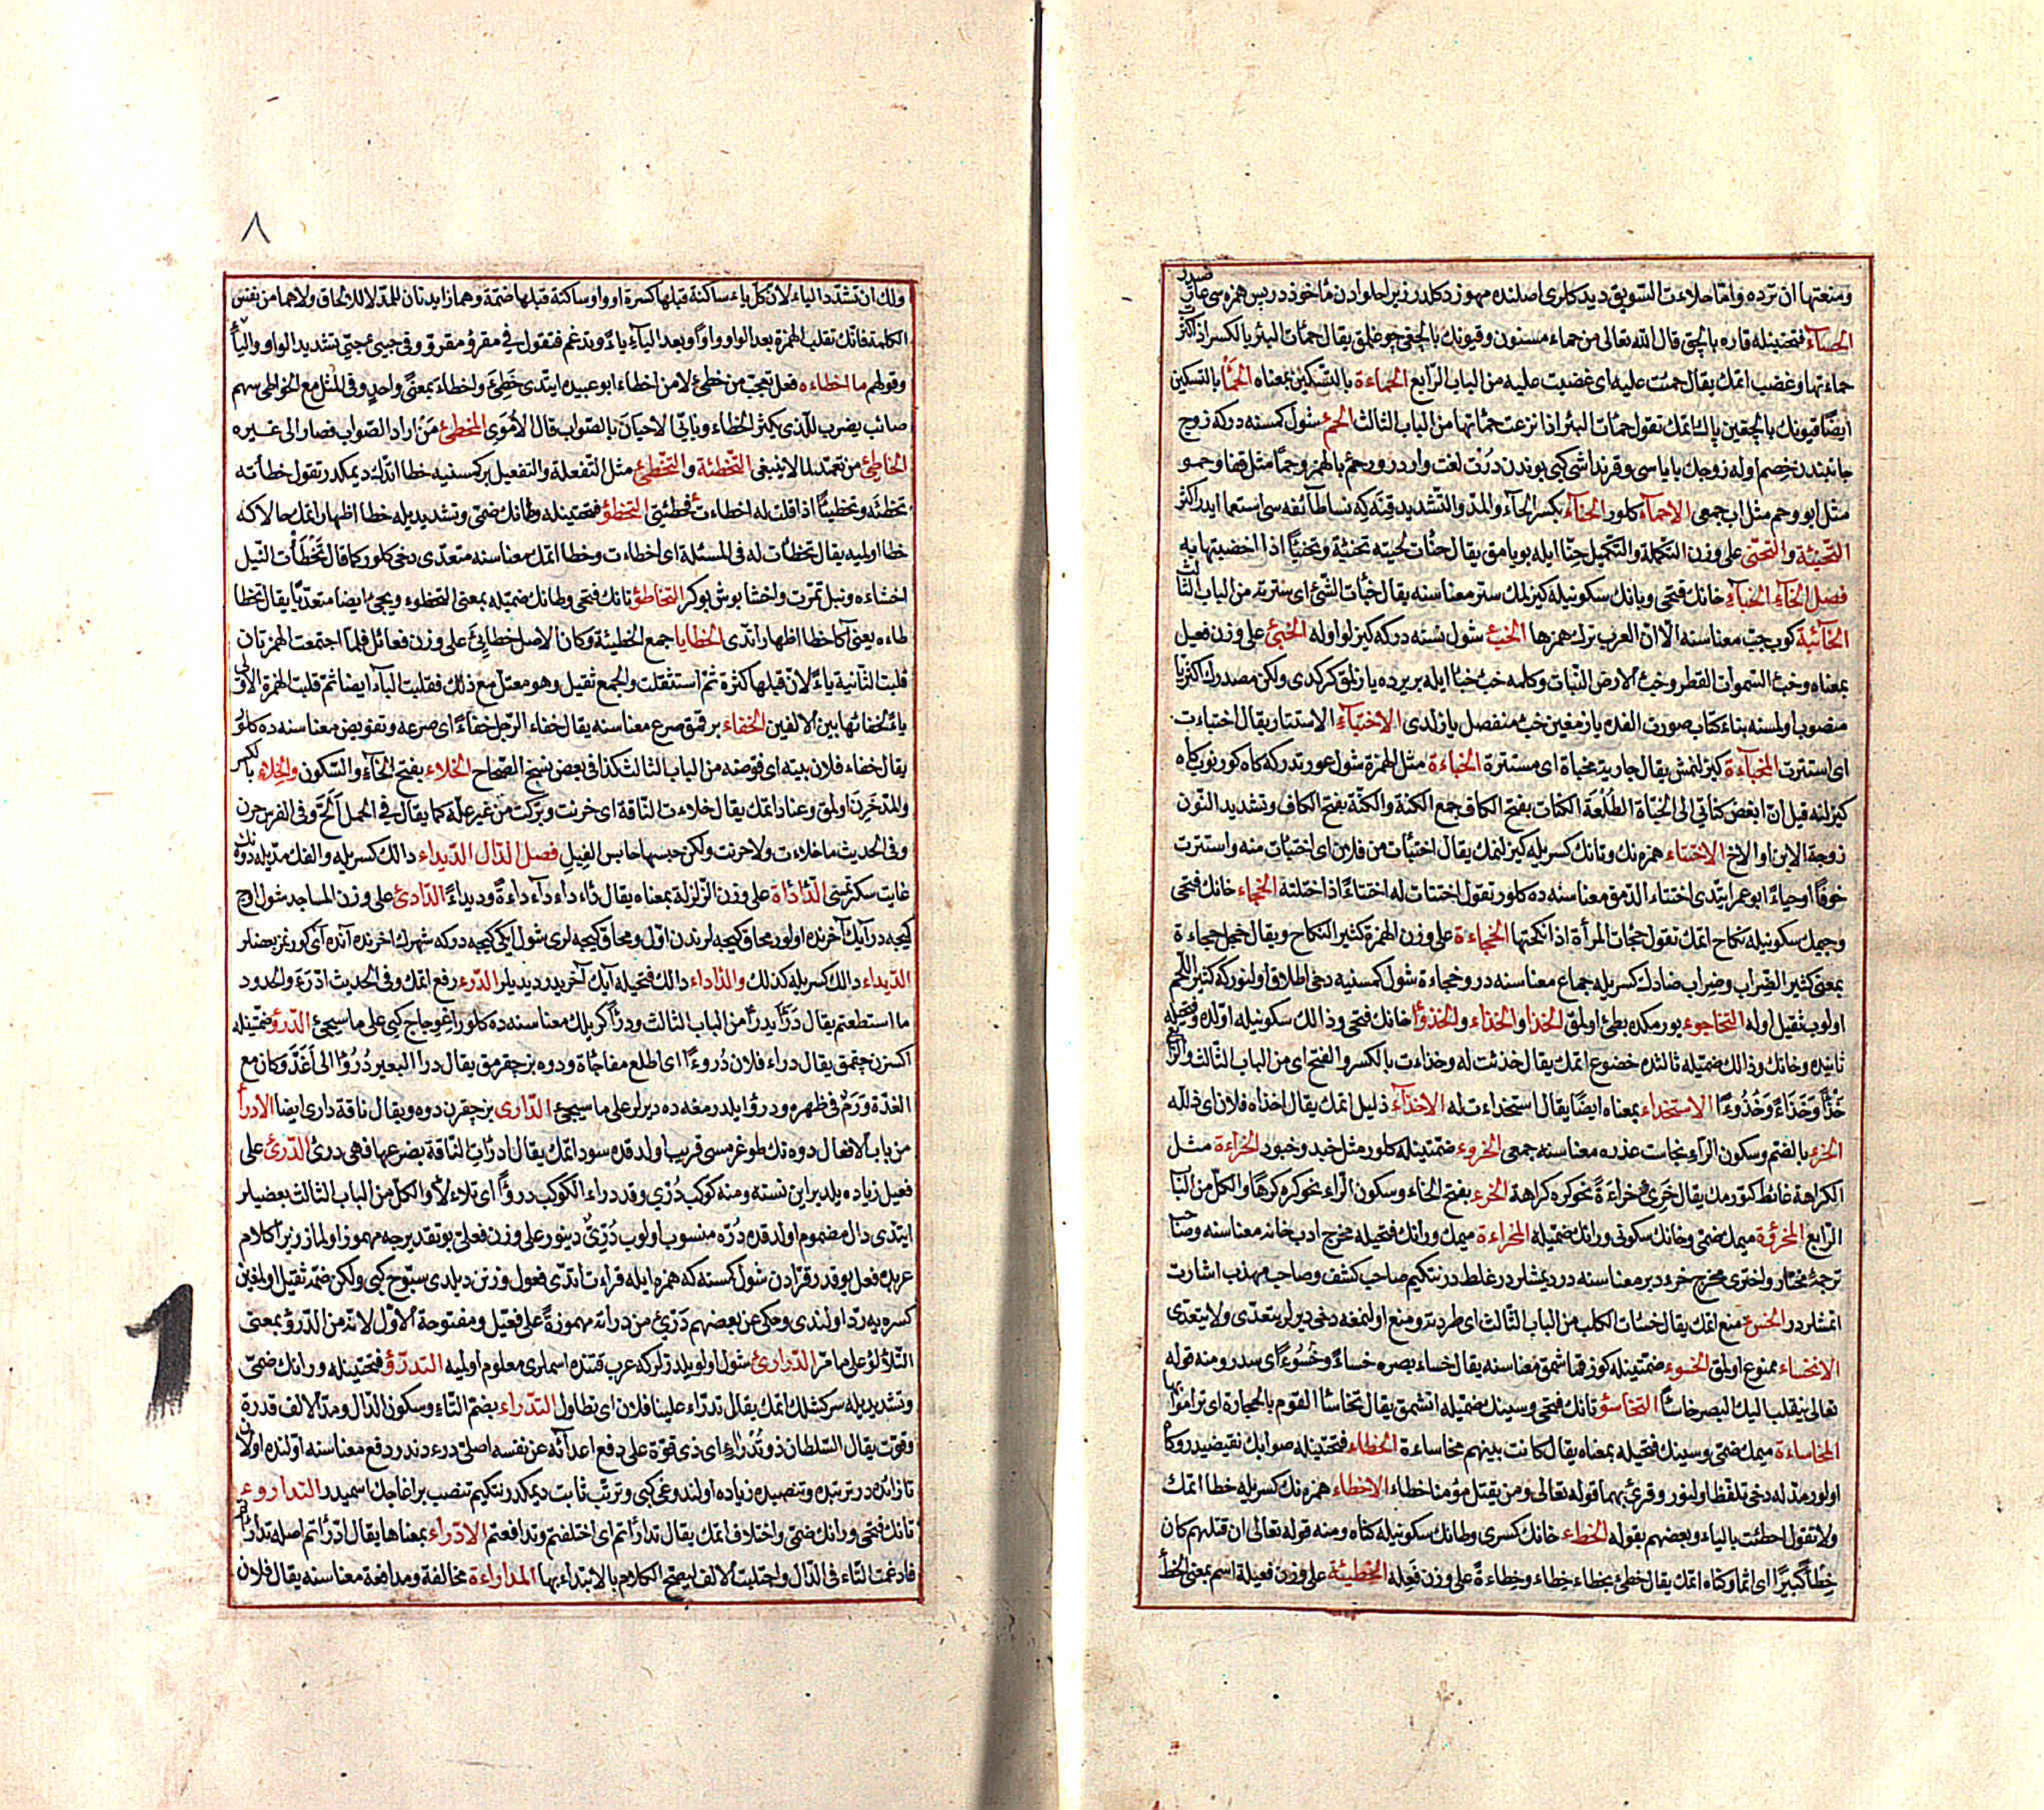 ومنعتها ان ترده واما حلاءت السويق ديدكلرى اصلنده مهموز دكلدر زيرا حلوادن مأخوذدر پس همزه سى
الحمأ فتحتينله قاره بالچق قال الله تعالى من حماء مسنون وقيونك بالچقى چوغلمق يقال حمأت البئر بالكسر اذا كثر
حماءتها وغضب اتمك يقال حمئت عليه اى غضبت عليه من الباب الرابع الحماءة بالتسكين بمعناه الحمأ بالتسكين
ايضا قيونك بالچغين پاك اتمك تقول حمأت البئر اذا نزعت حمأتها من الباب الثالث الحمء شول كمسنه دركه زوج
جانبندن خصم اوله زوجك باباسى وقرنداشى كبى بوندن درت لغت واردر حمء بالهمز وحما مثل قفا وحمو
مثل ابو وحم مثل اب جمعى الاحماء كلور الحناء بكسر الحاء والمد والتشديد قنه كه نسا طائفه سى استعمال ايدر
التحنئة والتحنئ على وزن التكملة والتكميل حنا ايله بويامق يقال حنأت لحيته تحنئة وتحنيئا اذا اخضبتها به
فصل الخاء الخباء خانك فتحى وبانك سكونيله كيزلمك ستر معناسنه يقال خبأت الشئ اى سترته من الباب الثالث
الخابئة كوب جب معناسنه الا ان العرب ترك همزها الخبء شول نسنه دركه كيزلو اوله الخبئ على وزن فعيل
بمعناه وخبء السموات القطر وخبء الارض النبات وكلمه خبء خبأ ايله بر يرده يازلمق كركدى ولكن مصدر اكثريا
منصوب اولمسنه بناء كتاب صورت الفده يازمغين خبء منفصل يازلدى الاختباء الاستتار يقال اختباءت
اى استترت المخبأة كيزلنمش يقال جارية مخباة اى مستترة الخباءة مثل الهمزة شول عورتدركه كاه كورينوب كاه
كيزلنه قيل ان ابغض كنائنى الى الخبأة الطلعة الكنات بفتح الكاف جمع الكنة والكنة بفتح الكاف وتشديد النون
زوجة الابن او الاخ الاختتاء همزه نك وتانك كسريله كيزلنمك يقال اختتأت من فلان اى اختبأت منه واستترت
خوفا او حياء ابو عمر ايتدى اختتاء الذمق معناسنه ده كلور تقول اختتأت له اختتاء اذا ختلته الخجاء خانك فتحى
وجيمك سكونيله نكاح اتمك تقول خجأت المرأة اذا نكحتها الخجاءة على وزن الهمزة كثير النكاح ويقال فحل خجاءة
بمعنى كثير الضراب وضراب ضادك كسريله جماع معناسنه در وخجاءة شول كمسنيه دخى اطلاق اولنوركه كثير اللحم
اولوب ثقيل اوله التخاجوء يوريمكده بطئ اولمق الخذأ والخذاء والخذوأ خانك فتحى وذالك سكونيله اولده وفتحيله
ثانيده وخانك وذالك ضميله ثالثده خضوع اتمك يقال خذئت له وخذاءت بالكسر والفتح اى من الباب الثالث والرابع
خذأ وخذاء وخذوءا الاستخذاء بمعناه ايضا يقال استخذاءت له الاخذاء ذليل اتمك يقال اخذاه فلان اى ذلله
الخرء بالضم وسكون الراء نجاست عذره معناسنه جمعى الخروء ضمتينله كلور مثل جند وجنود الخراءة مثل
الكراهة غائط كتورمك يقال خرئ خراءة نحو كره كراهة الخرء بفتح الخاء وسكون الراء نحو كره كرها والكل من الباب
الرابع المخرؤة ميمك ضمى وخانك سكونى ورانك ضميله المخراءة ميمك ورانك فتحيله مخرج ادبخانه معناسنه وصاحب
ترجمۀ مختار واخترى مخرج خرء دبر معناسنه در ديمشلر در غلطدر نتكيم صاحب كشف وصاحب مهذب اشارت
اتمشلردر الخسء منع اتمك يقال خسأت الكلب من الباب الثالث اى طردته ومنع اولنمغه دخى ديرلر يتعدى ولا يتعدى
الانخساء ممنوع اولمق الخسوء ضمتينله كوز قماشمق معناسنه يقال خساء بصره خساء وخسوءا اى سدر ومنه قوله
تعالى ينقلب اليك البصر خاسئا التخاسؤ تانك فتحى وسينك ضميله اتشمق يقال تخاسأ القوم بالحجارة اى تراموا بها
المخاساءة ميمك ضمى وسينك فتحيله بمعناه يقال كانت بينهم مخاساءة الخطاء فتحتينله صوابك نقيضيدر وكاه
اولور مدله دخى تلفظ اولنور وقرئ بهما قوله تعالى ومن يقتل مؤمنا خطاء الاخطاء همزه نك كسريله خطا اتمك
ولا تقول اخطيت بالياء وبعضهم يقوله الخطاء خانك كسرى وطانك سكونيله كناه ومنه قوله تعالى ان قتلهم كان
خطأ كبيرا اى اثما وكناه اتمك يقال خطئ يخطاء خطاء وخطاءة على وزن فعلة الخطيئة على وزن فعيلة اسم بمعنى الخطأ
٨
ولك ان تشدد الياء لان كل ياء ساكنة قبلها كسرة او واو ساكنة قبلها ضمة وهما زايدتان للمد لا للالحاق ولا هما من نفس
الكلمة فانك تقلب الهمزة بعد الواو واوا وبعد الياء ياء وتدغم فتقول فى مقرؤ مقرو وفى خبئ خبى بتشديد الواو والياء
وقولهم ما اخطاءه فعل تعجب من خطئ لا من اخطاء ابو عبيده ايتدى خطئ واخطاء بمعنى واحد وفى المثل مع الخواطى سهم
صائب يضرب للذى يكثر الخطاء وياتى الاحيان بالصواب قال الاموى المخطئ من اراد الصواب فصار الى غيره
الخاطئ من تعمد لما لا ينبغى التخطئة والتخطئ مثل التفعلة والتفعيل بر كمسنيه خطا اتدك ديمكدر تقول خطأته
تخطئة وتخطيئا اذا قلت له اخطاءت فخطئنى التخطؤ فتحتينله وطانك ضمى وتشديديله خطا اظهار اتمك حالا كه
خطا اولميه يقال تخطأت له فى المسئلة اى اخطاءت وخطا اتمك معناسنه متعدى دخى كلور كما قال تخطأت النيل
احشاءه ونبل تمرت واحشا بوش بوكر التخاطؤ تانك فتحى وطانك ضميله بمعنى التخطوء ويجئ ايضا متعديا يقال تخطا
طاءه يعنى آكا خطا اظهار اتدى الخطايا جمع الخطيئة وكان الاصل خطائئ على وزن فعائل فلما اجتمعت الهمزتان
قلبت الثانية ياء لان قبلها كثرة ثم استثقلت والجمع ثقيل وهو معتل مع ذلك فقلبت الياء ايضا ثم قلبت الهمزة الاولى
ياء لخفائها بين الالفين الخفاء برقمق صرع معناسنه يقال خفاء الرجل خفاء اى صرعه وتقويض معناسنه ده كلور
يقال خفاء فلان بيته اى قوضه من الباب الثالث كذا فى بعض نسخ الصحاح الخلاء بفتح الخاء والسكون والخلاء بالكسر
والمد حرن اولمق وعناد اتمك يقال خلاءت الناقة اى حرنت وبركت من غير علة كما يقال فى الجمل الح وفى الفرس حرن
وفى الحديث ما خلاءت ولا حرنت ولكن حبسها حابس الفيل فصل الدال الديداء دالك كسريله والفك مديله دوه نك
غايت سكرتمسى الدأداة على وزن الزلزلة بمعناه يقال داء داء دآداءة وديداء الدآدئ على وزن المساجد شول اوچ
كيجه در آيك آخرنده اولور محاق كيجه لرندن اول ومحاق كيجه لرى شول ايكى كيجه دركه شهرك اخرنده آنده آى كورنمز بعضلر
الديداء دالك كسريله كذلك والداداء دالك فتحيله آيك آخريدر ديديلر الدرء رفع اتمك وفى الحديث ادرؤ الحدود
ما استطعتم يقال درأ يدرأ من الباب الثالث ودرأ اكريلك معناسنه ده كلور اعوجاج كبى على ما سيجئ الدرؤ ضمتينله
اكسزن چقمق يقال دراء فلان دروءا اى اطلع مفاجاة ودوه بز چقرمق يقال درا البعير دروا اى اغد وكان مع
الغدة ورم فى ظهره ودرؤا يلدرمغه ده ديرلر على ما سيجئ الدارى بز چقرن دوه ويقال ناقة دارى ايضا الادرأ
من باب الافعال دوه نك طوغرمسى قريب اولدقده سود اتمك يقال ادرأت الناقة بضرعها فهى درئ الدرئ على
فعيل زياده يلدير اين نسنه ومنه كوكب درى وقد دراء الكوكب دروأ اى تلاءلأ والكل من الباب الثالث بعضيلر
ايتدى دال مضموم اولدقده دره منسوب اولوب درى دينور على وزن فعلى بو تقديرجه مهموز اولماز زيرا كلام
عربده فعل يوقدر قرادن شول كمسنه كه همزه ايله قراءت اتدى فعول وزنن ديلدى سبوح كبى ولكن ضمه ثقيل اولمغين
كسره يه رد اولندى وحكى عن بعضهم درئ من درأته مهموزة على فعيل ومفتوحة الاول لانه من الدرؤ بمعنى
التلألؤ على ما مر الدرارئ شول اولو يلدزلركه عرب قتنده اسملرى معلوم اولميه التدرؤ فتحتينله ورانك ضمى
وتشديديله سركشلك اتمك يقال تدراء علينا فلان اى تطاول التدراء بضم التاء وسكون الدال ومد الالف قدرة
وقوت يقال السلطان ذو تدراء اى ذى قوة على دفع اعدآئه عن نفسه اصلى درء دندر دفع معناسنه اولنده اولان
تا زائده در ترتبده وتنصبده زياده اولندوغى كبى وترتب ثابت ديمكدر نتكيم تنصب بر اغاجك اسميدر التداروء
تانك فتحى ورانك ضمى واختلاف اتمك يقال تدارأتم اى اختلفتم وتدافعتم الادراء بمعناها يقال ادرأتم اصله تدارأتم
فادغمت التاء فى الدال واجتلبت الالف ليصح الكلام بالابتداء بها المداراءة مخالفة ومدافعة معناسنه يقال فلان